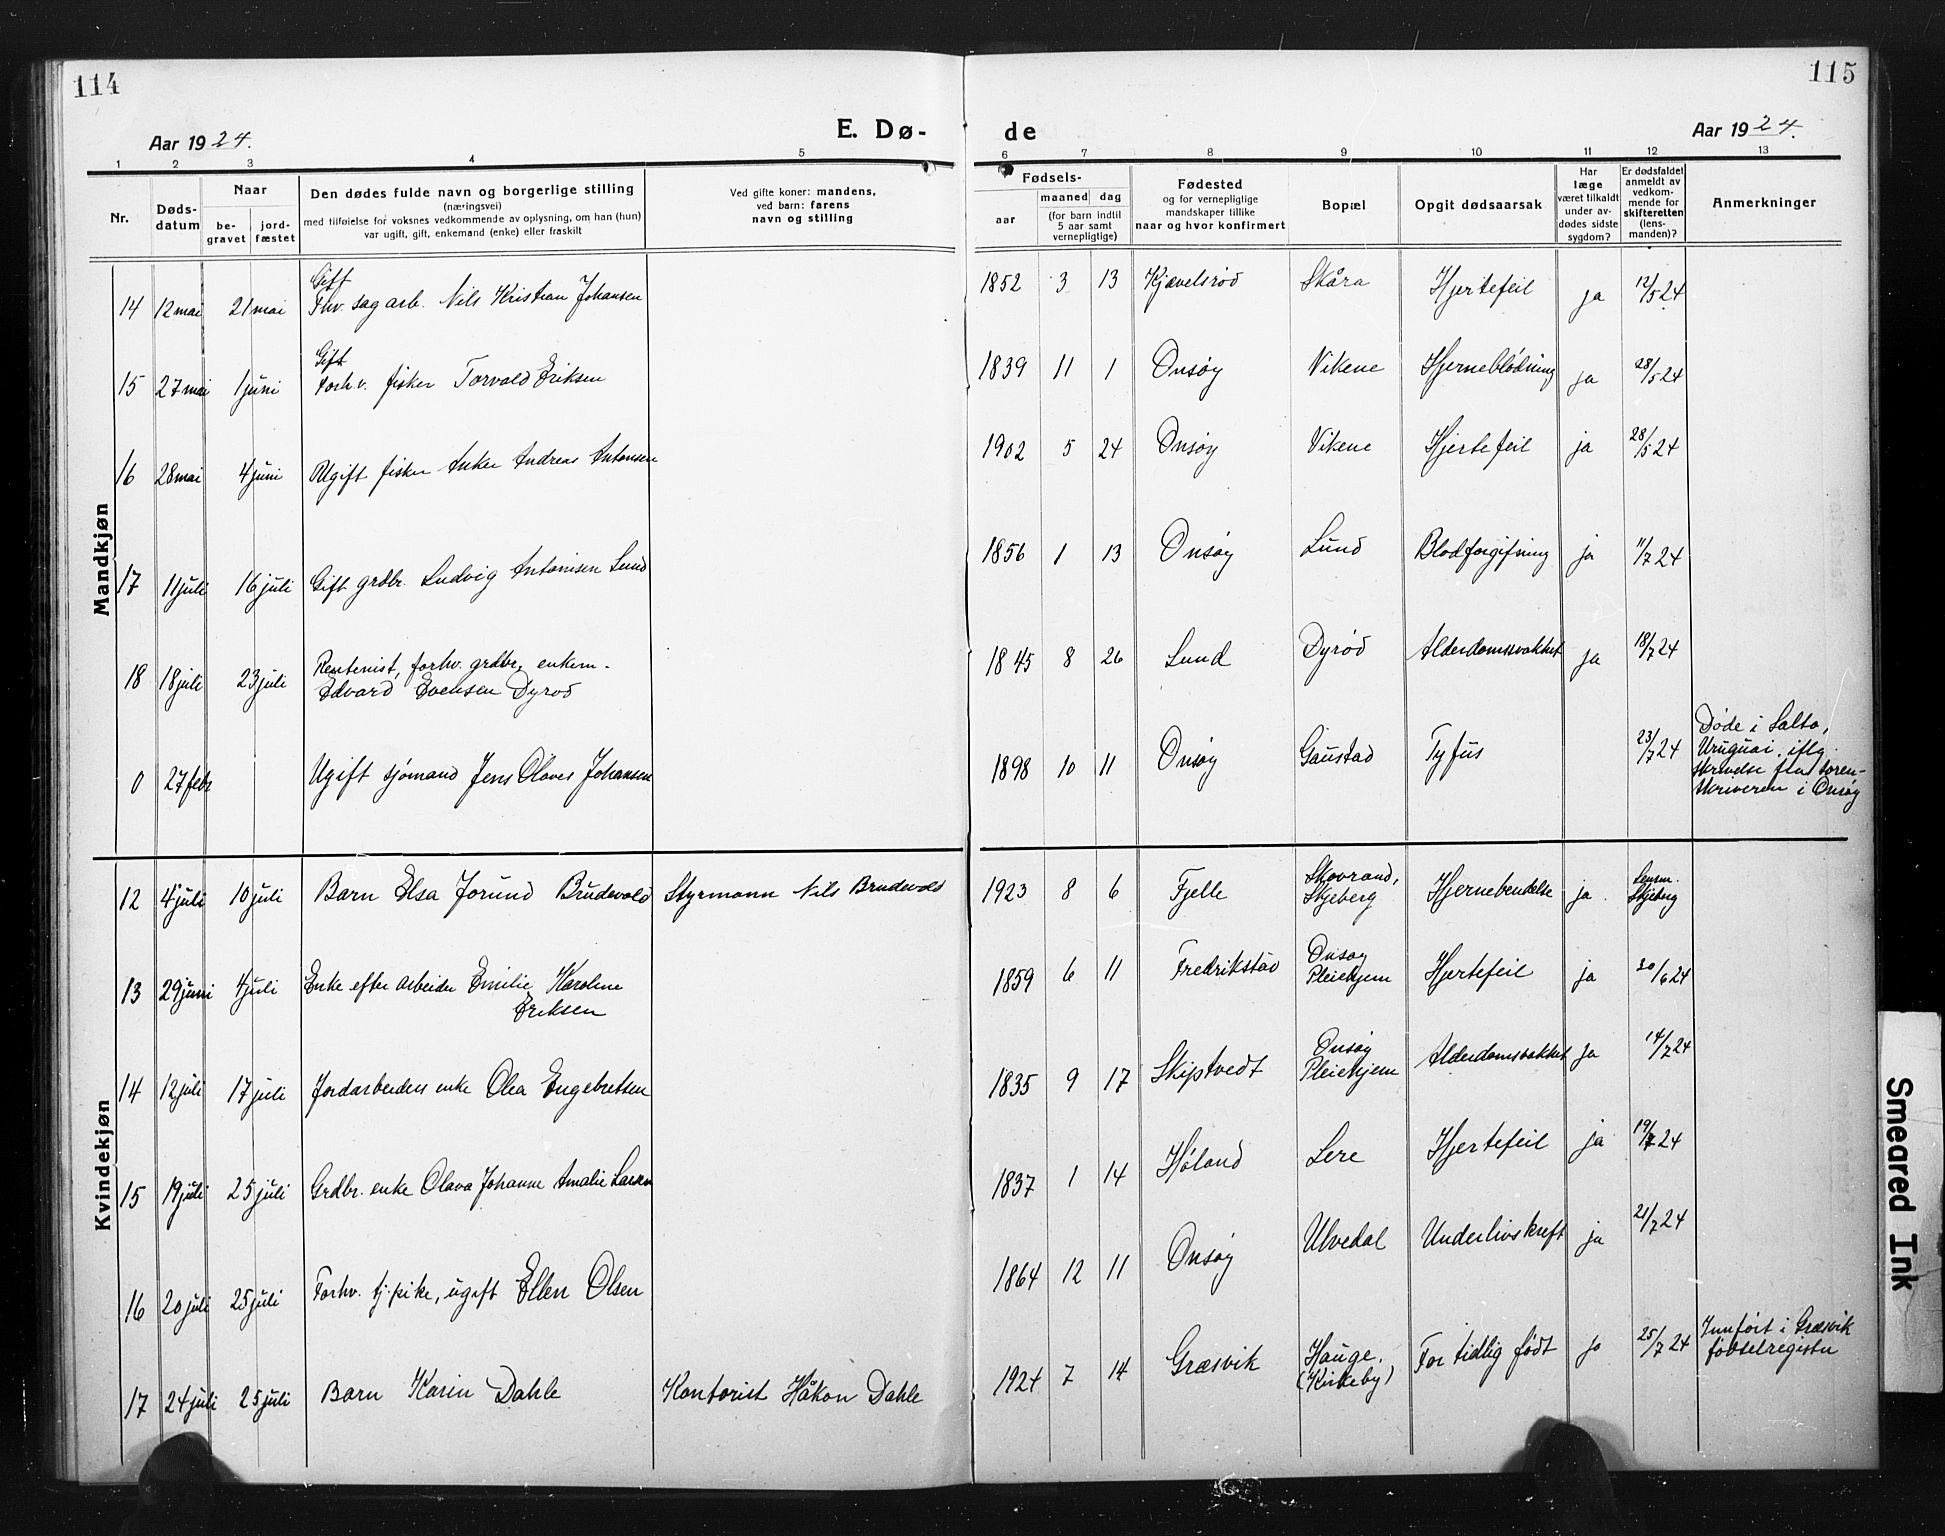 114
115
Aar 1924.
E. Dø-
de
Aar 1924.
1 2 3 4 5 6 7 8 9 10 11 12 13
Nr.
Døds-
datum
Naar
be-
gravet
jord-
fæstet
Den dødes fulde navn og borgerlige stilling
(næringsvei)
med tilføielse for voksnes vedkommende av oplysning, om han (hun)
var ugift, gift, enkemand (enke) eller fraskilt
Ved gifte koner: mandens,
ved barn: farens
navn og stilling
Fødsels-
aar
maaned dag
(for barn indtil
5 aar samt
vernepligtige)
Fødested
og for vernepligtige
mandskaper tillike
naar og hvor konfirmert
Bopæl
Opgit dødsaarsak
Har
læge
været tilkaldt
under av-
dødes sidste
sygdom?
Er dødsfaldet
anmeldt av
vedkom-
mende for
skifteretten
(lens-
manden)?
Anmerkninger
Mandkjøn
Gift
14 12 mai 21 mai Fhv. sagarb. Nils Kristian Johansen 1852 3 13 Kjævelsrød Skåra Hjertefeil ja 12/5 24
Gift
15 27 mai 1 juni Forhv. fisker Torvald Eriksen 1839 11 1 Onsøy Vikene Hjerneblødning ja 28/5 24
16 28 mai 4 juni Ugift fisker Anker Andreas Antonsen 1902 5 24 Onsøy Vikene Hjertefeil ja 28/5 24
17 11 juli 16 juli Gift grdbr. Ludvig Antonisen Lund 1856 1 13 Onsøy Lund Blodforgifning ja 11/7 24
18 18 juli 23 juli Rentenist, forhv. grdbr, enkem.
Edvard Evensen Dyrød 1845 8 26 Lund Dyrød Alderdomssvakhet ja 18/7 24
0 27 febr Ugift sjømand Jens Olaves Johansen 1898 10 11 Onsøy Gaustad Tyfus 23/7 24
Døde i Salto,
Uruguai, iflg.
skrivelse fra soren-
skriveren i Onsøy
Kvindekjøn
12 4 juli 10 juli Barn Elsa Jorund Brudevold Styrmann Nils Brudevold 1923 8 6 Fjelle Skovrand,
Skjeberg Hjernebendelse ja. Lensm.
Skjeberg
13 29 juni 4 juli Enke efter arbeider Emilie Karoline
Eriksen 1859 6 11 Fredrikstad Onsøy
Pleiehjem Hjertefeil ja 30/6 24
14 12 juli 17 juli Jordarbeiders enke Olea Engebretsen 1835 9 17 Skiptvedt Onsøy
Pleiehjem Alderdomsvakhet ja 14/7 24
15 19 juli 25 juli Grdbr. enke Olava Johanne Amalie Larsen 1837 1 14 Høland Lere Hjertefeil ja 19/7 24
16 20 juli 25 juli Forhv. tj.pike, ugift Ellen Olsen 1864 12 11 Onsøy Ulvedal Underlivskreft ja 21/7 24
17 24 juli 25 juli Barn Karin Dahle Kontorist Håkon Dahle 1924 7 14 Græsvik Hauge.
(Kirkeby) For tidlig født ja 25/7 24
Innført i Græsvik
fødselregister
Smeared Ink